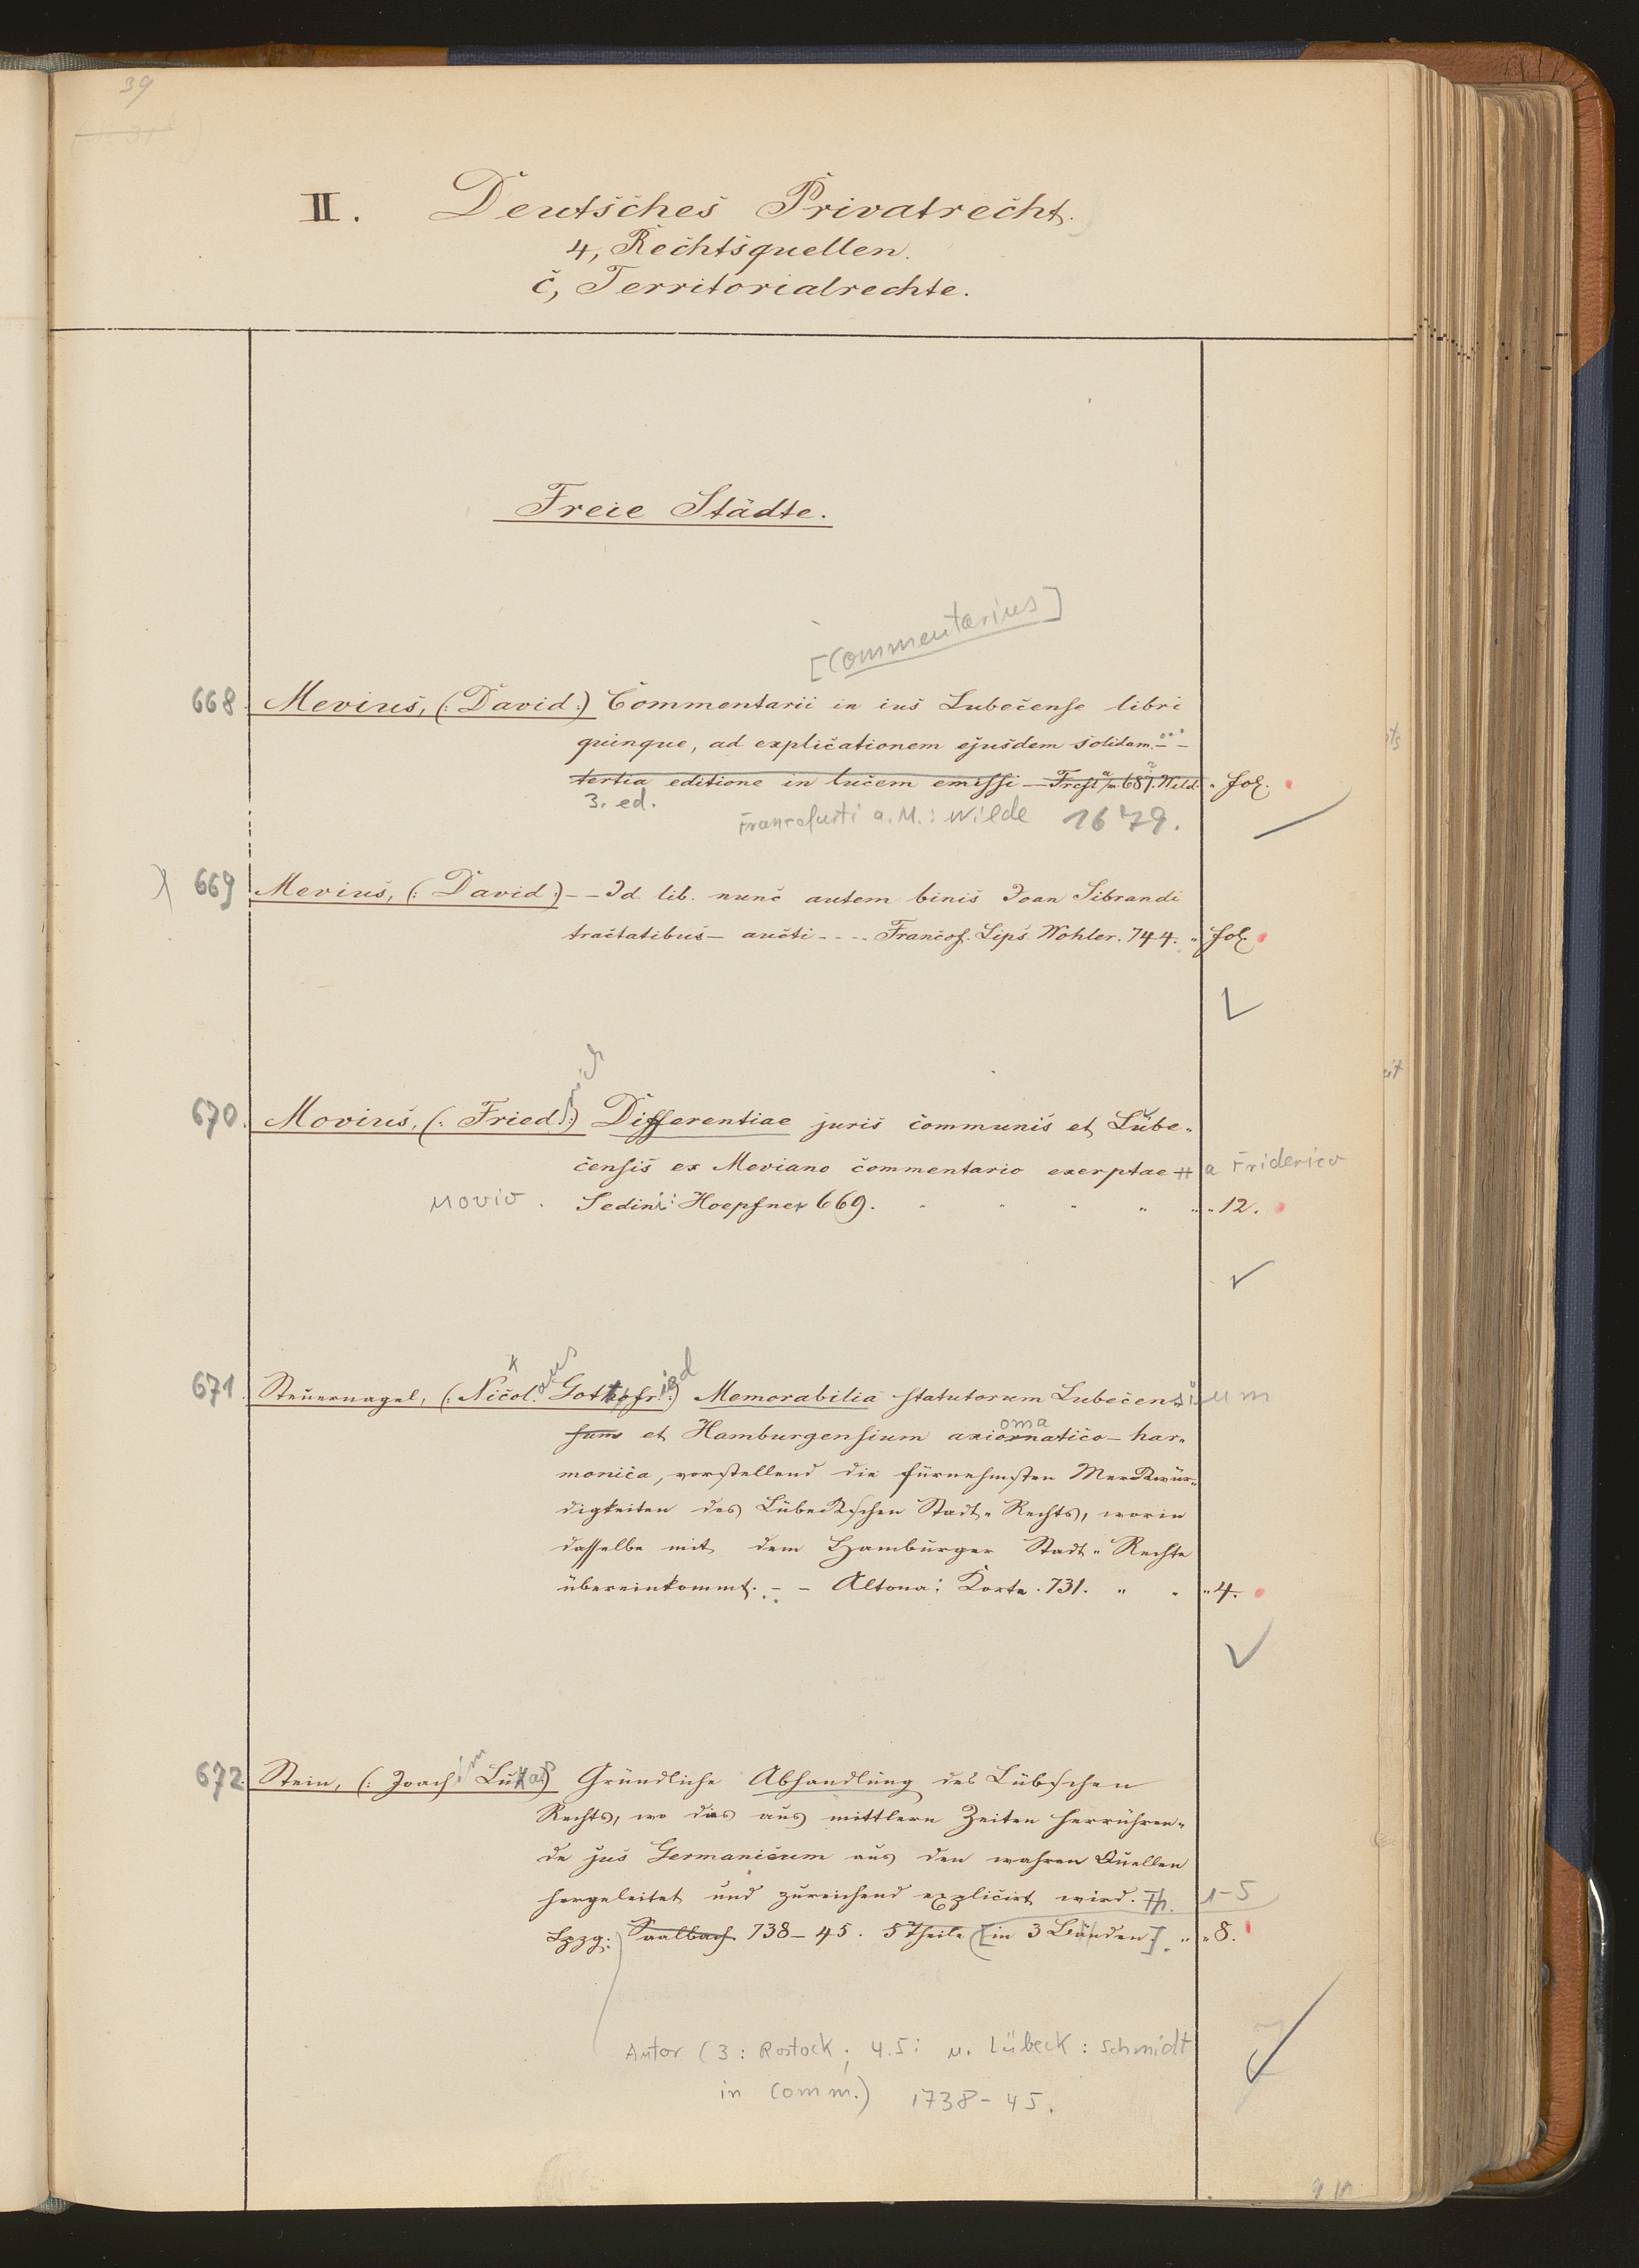 39
II. Deutsches Privatrecht.
4, Rechtsquellen.
c, Territorialrechte.
Freie Städte.
[Commentarius]
668. Mevius, (: David :) Commentarii in ius Lubecense libri
quinque, ad explicationem ejusdem solidam. - -
tertia editione in lucem emissi — Frcft a/m. 687. Wild. " fol.
3. ed. Francofurti a. M.: Wilde 1679.
669 Mevius, (: David :) - - Id. lib. nunc autem binis Joan Sibrandi
tractatibus - aucti - - - - Francof. Lips. Wohler. 744. " fol.
670. Movius, (: Friedrich :) Differentiae juris communis et Lube-
censis ex Meviano commentario exerptae # a Friderico
Movio. Sedini: Hoepfner 669. " " " " " 12.
671. Steuernagel, (: Nicolaus Gottfried :) Memorabilia statutorum Lubecensium
sum et Hamburgensium axiomatico - har-
monica, vorstellend die fürnehmsten Merckwür-
digkeiten des Lübeckschen Stadt-Rechts, worin
dasselbe mit dem Hamburger Stadt-Rechte
übereinkommt. - - Altona: Korte. 731. " " " 4.
672. Stein, (: Joachim Lukas) Gründliche Abhandlung des Lübschen
Rechts, wo das aus mittlern Zeiten herrühren-
de jus Germanicum aus den wahren Quellen
hergeleitet und zureichend explicirt wird. Th. 1-5
Lpzg: Saalbach. 738-45. 5 Theile [in 3 Bänden]. " " 8.
Autor (3: Rostock; 4.5: u. Lübeck: Schmidt
in Comm.) 1738-45.